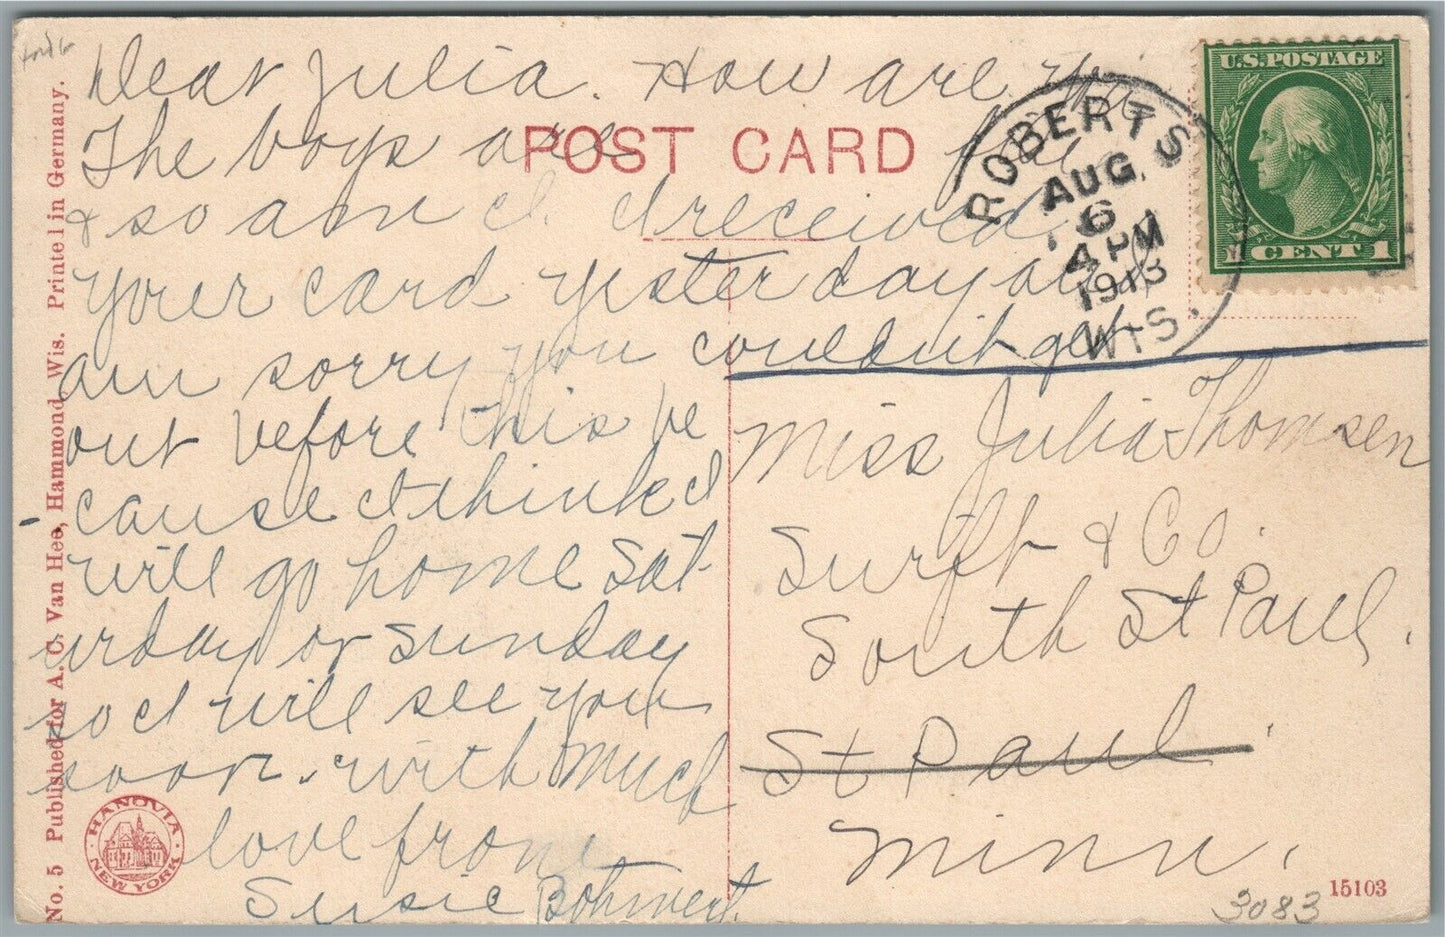 Dear Julia. How are you
The boys are fine
& so am I. I received
your card yesterday and
am sorry you couldnt get
out before this be
cause I think I
will go home Sat
urday or Sunday
so I will see you
soon. with much
love from
Susie
POST CARD
ROBERTS
AUG
6
4 PM
1913
WIS.
U.S. POSTAGE
1 CENT 1
Miss Julia Thomsen
Swift & Co.
South St Paul.
St Paul
Minn.
No. 5 Published for A. C. Van Hee, Hammond, Wis. Printed in Germany.
HANOVIA
NEW YORK
15103
3083